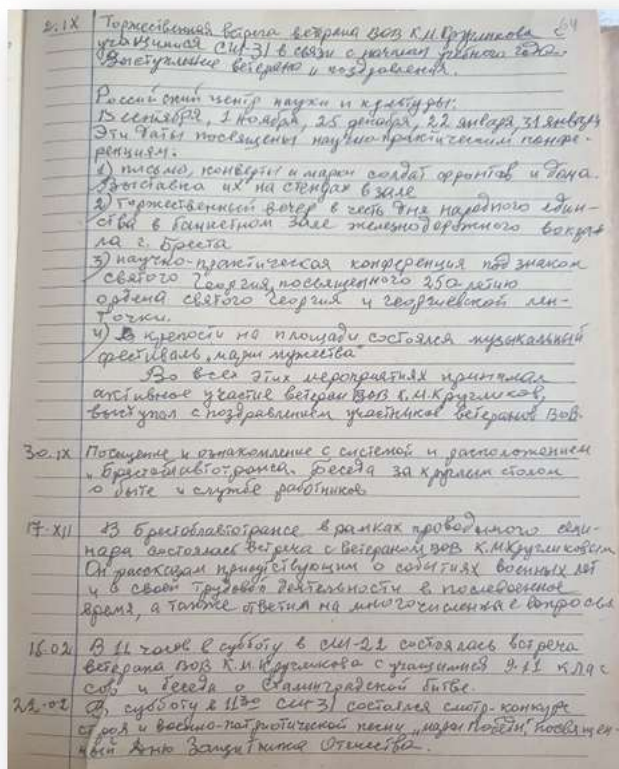 64
2.IX Торжественная встреча ветерана ВОВ К.М.Кругликова с
учащимися СШ-31 в связи с началом учебного года.
Выступление ветерана и поздравления.
Российский центр науки и культуры:
13 сентября, 1 ноября, 25 декабря, 22 января, 31 января
Эти даты посвящены научно-практическим конфе-
ренциям:
1) письма, конверты и марки солдат фронтов и дома.
Выставка их на стендах в зале
2) торжественный вечер в честь дня народного един-
ства в банкетном зале железнодорожного вокза-
ла г. Бреста
3) научно-практическая конференция под знаком
святого Георгия, посвященного 250 летию
ордена святого Георгия и георгиевской лен-
точки.
4) в крепости на площади состоялся музыкальный
фестиваль „марш мужества"
Во всех этих мероприятиях принимал
активное участие ветеран ВОВ К.М.Кругликов,
выступал с поздравлением участников ветеранов ВОВ.
30.IX Посещение и ознакомление с системой и расположением
„Брестоблавтотранса. Беседа за круглым столом
о быте и службе работников
17-XII В Брестоблавтотрансе в рамках проводимого семи-
нара состоялась встреча с ветераном ВОВ К.М.Кругликовым
Он рассказал присутствующим о событиях военных лет
и о своей трудовой деятельности в послевоенное
время, а также ответил на многочисленные вопросы
15.02 В 11 часов в субботу в СШ-22 состоялась встреча
ветерана ВОВ К.М.Кругликова с учащимися 9-11 клас
сов и беседа о Сталинградской битве.
22-02 В субботу в 11 30 СШ 31 состоялся смотр-конкурс
строя и военно-патриотической песни „марш Победы", посвящен-
ный Дню Защитника Отечества.